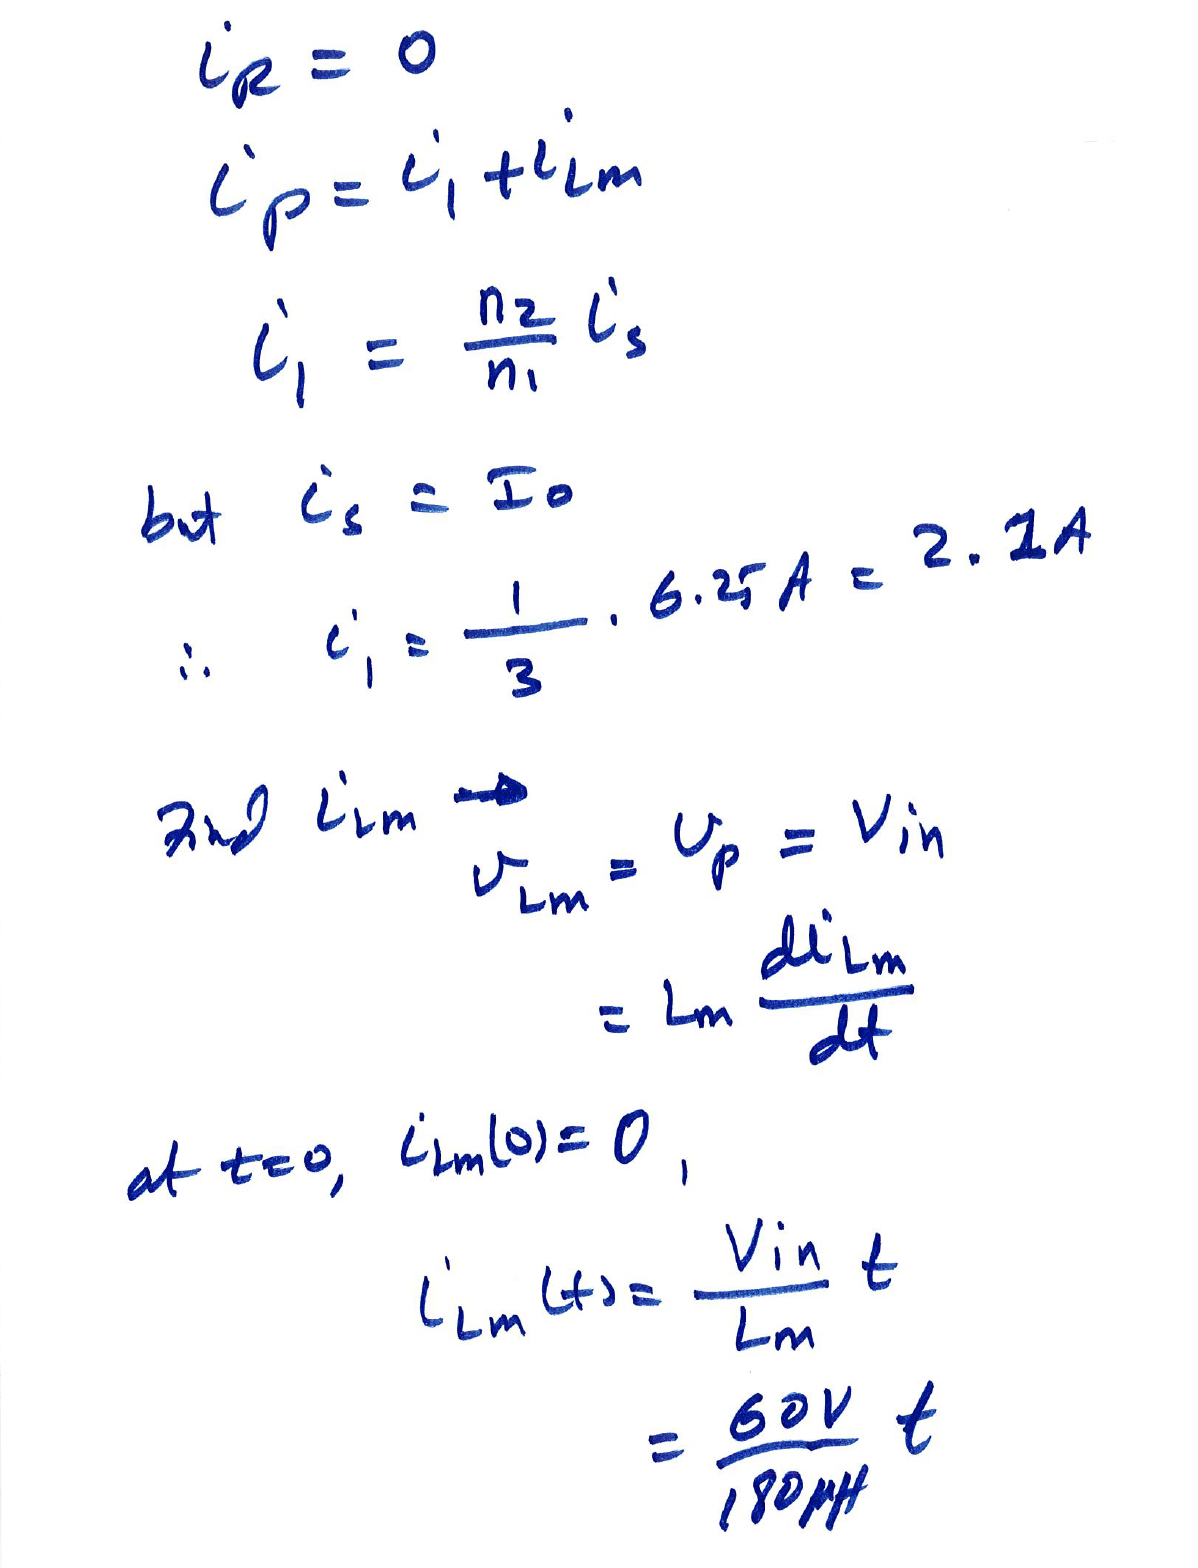 i_R = 0
i_p = i_1 + i_Lm
i_1 = n2/n1 i_s
but i_s = Io
∴ i_1 = 1/3 . 6.25 A = 2.1A
Find i_Lm →
v_Lm = v_p = Vin
= Lm di_Lm/dt
at t=0, i_Lm(0) = 0,
i_Lm(t) = Vin/Lm t
= 60V/180μH t